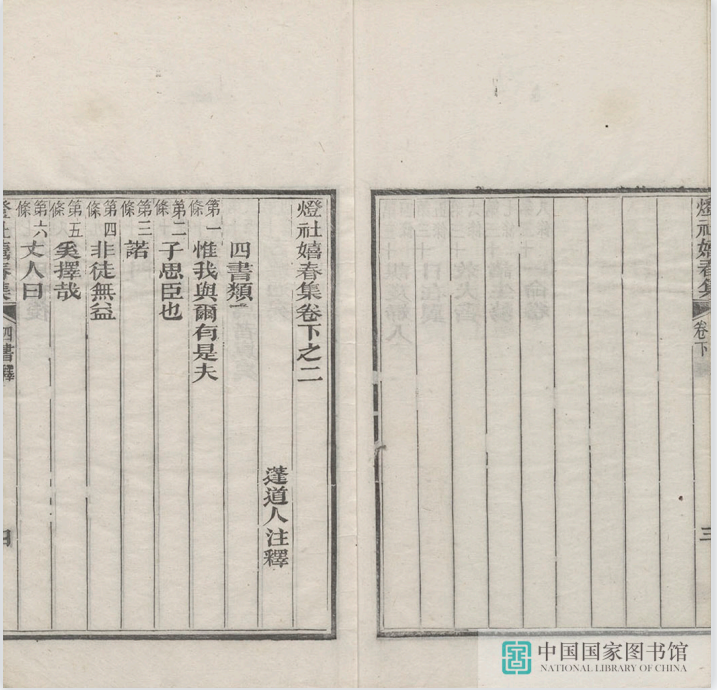 燈社嬉春集
卷下
三
燈社嬉春集卷下之二
蓬道人注釋
四書類二
第一條 惟我與爾有是夫
第二條 子思臣也
第三條 諾
第四條 非徒無益
第五條 奚擇哉
第六條 丈人曰
燈社嬉春集
四書釋
四
中国国家图书馆
NATIONAL LIBRARY OF CHINA